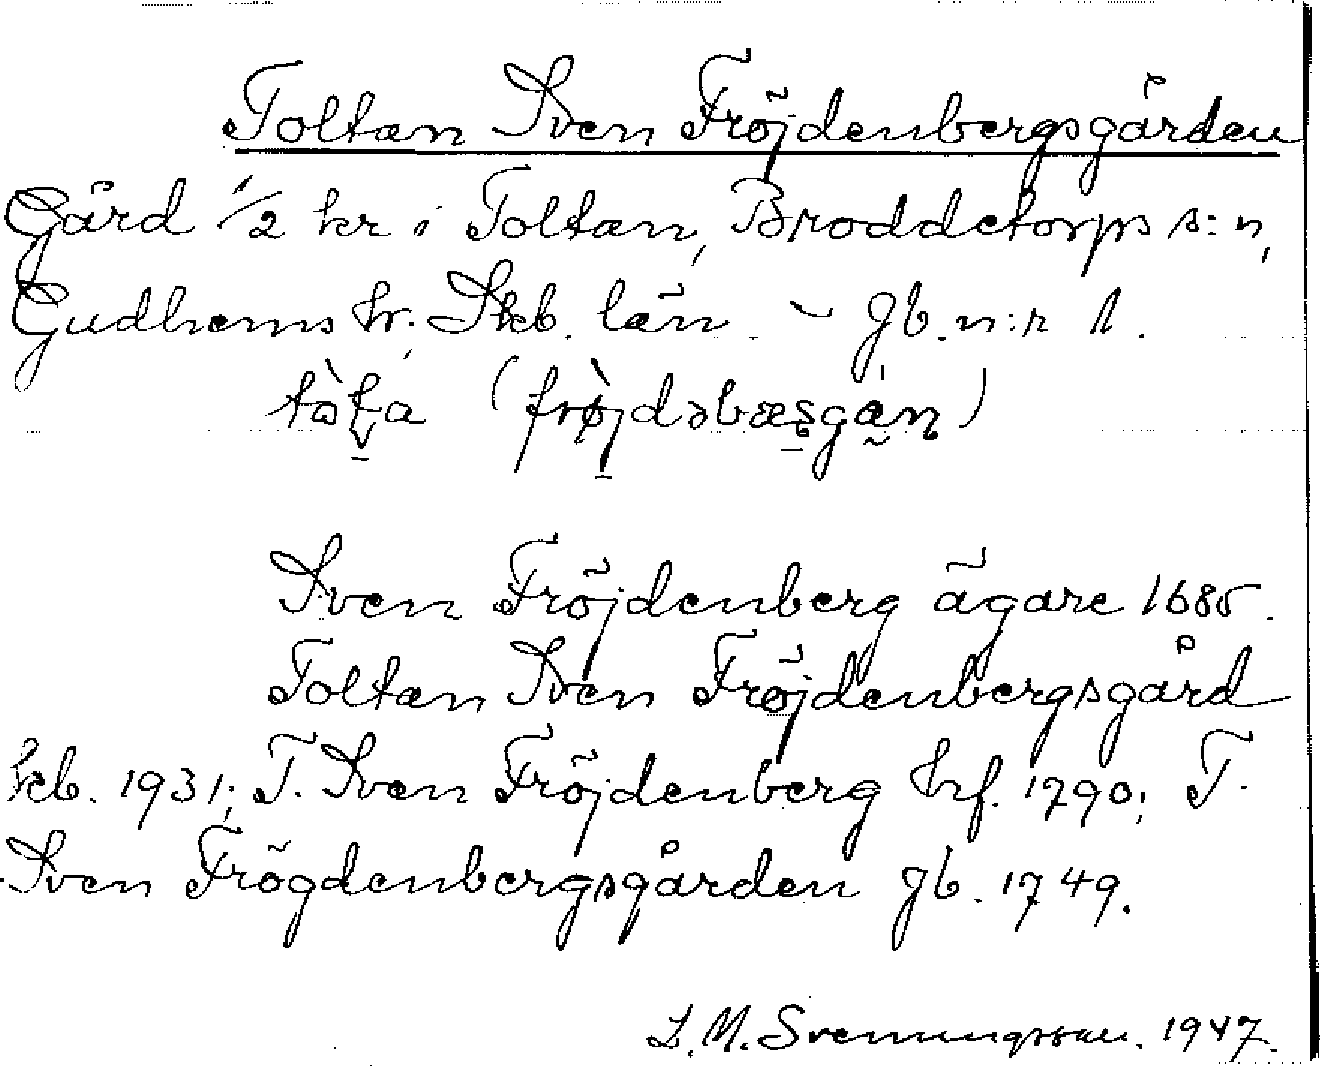 Toltan Sven Fröjdenbergsgården
Gård 1/2 kr i Toltan, Broddetorps s:n,
Gudhems hr. Skb. län – Jb. n:r 1.
(frøjdəbæsgan)
Sven Fröjdenberg ägare 1685.
Toltan Sven Fröjdenbergsgård
kb. 1931; T. Sven Fröjdenberg hf. 1790; T.
Sven Frögdenbergsgården Jb. 1749.
L. M. Svenungsson. 1947.